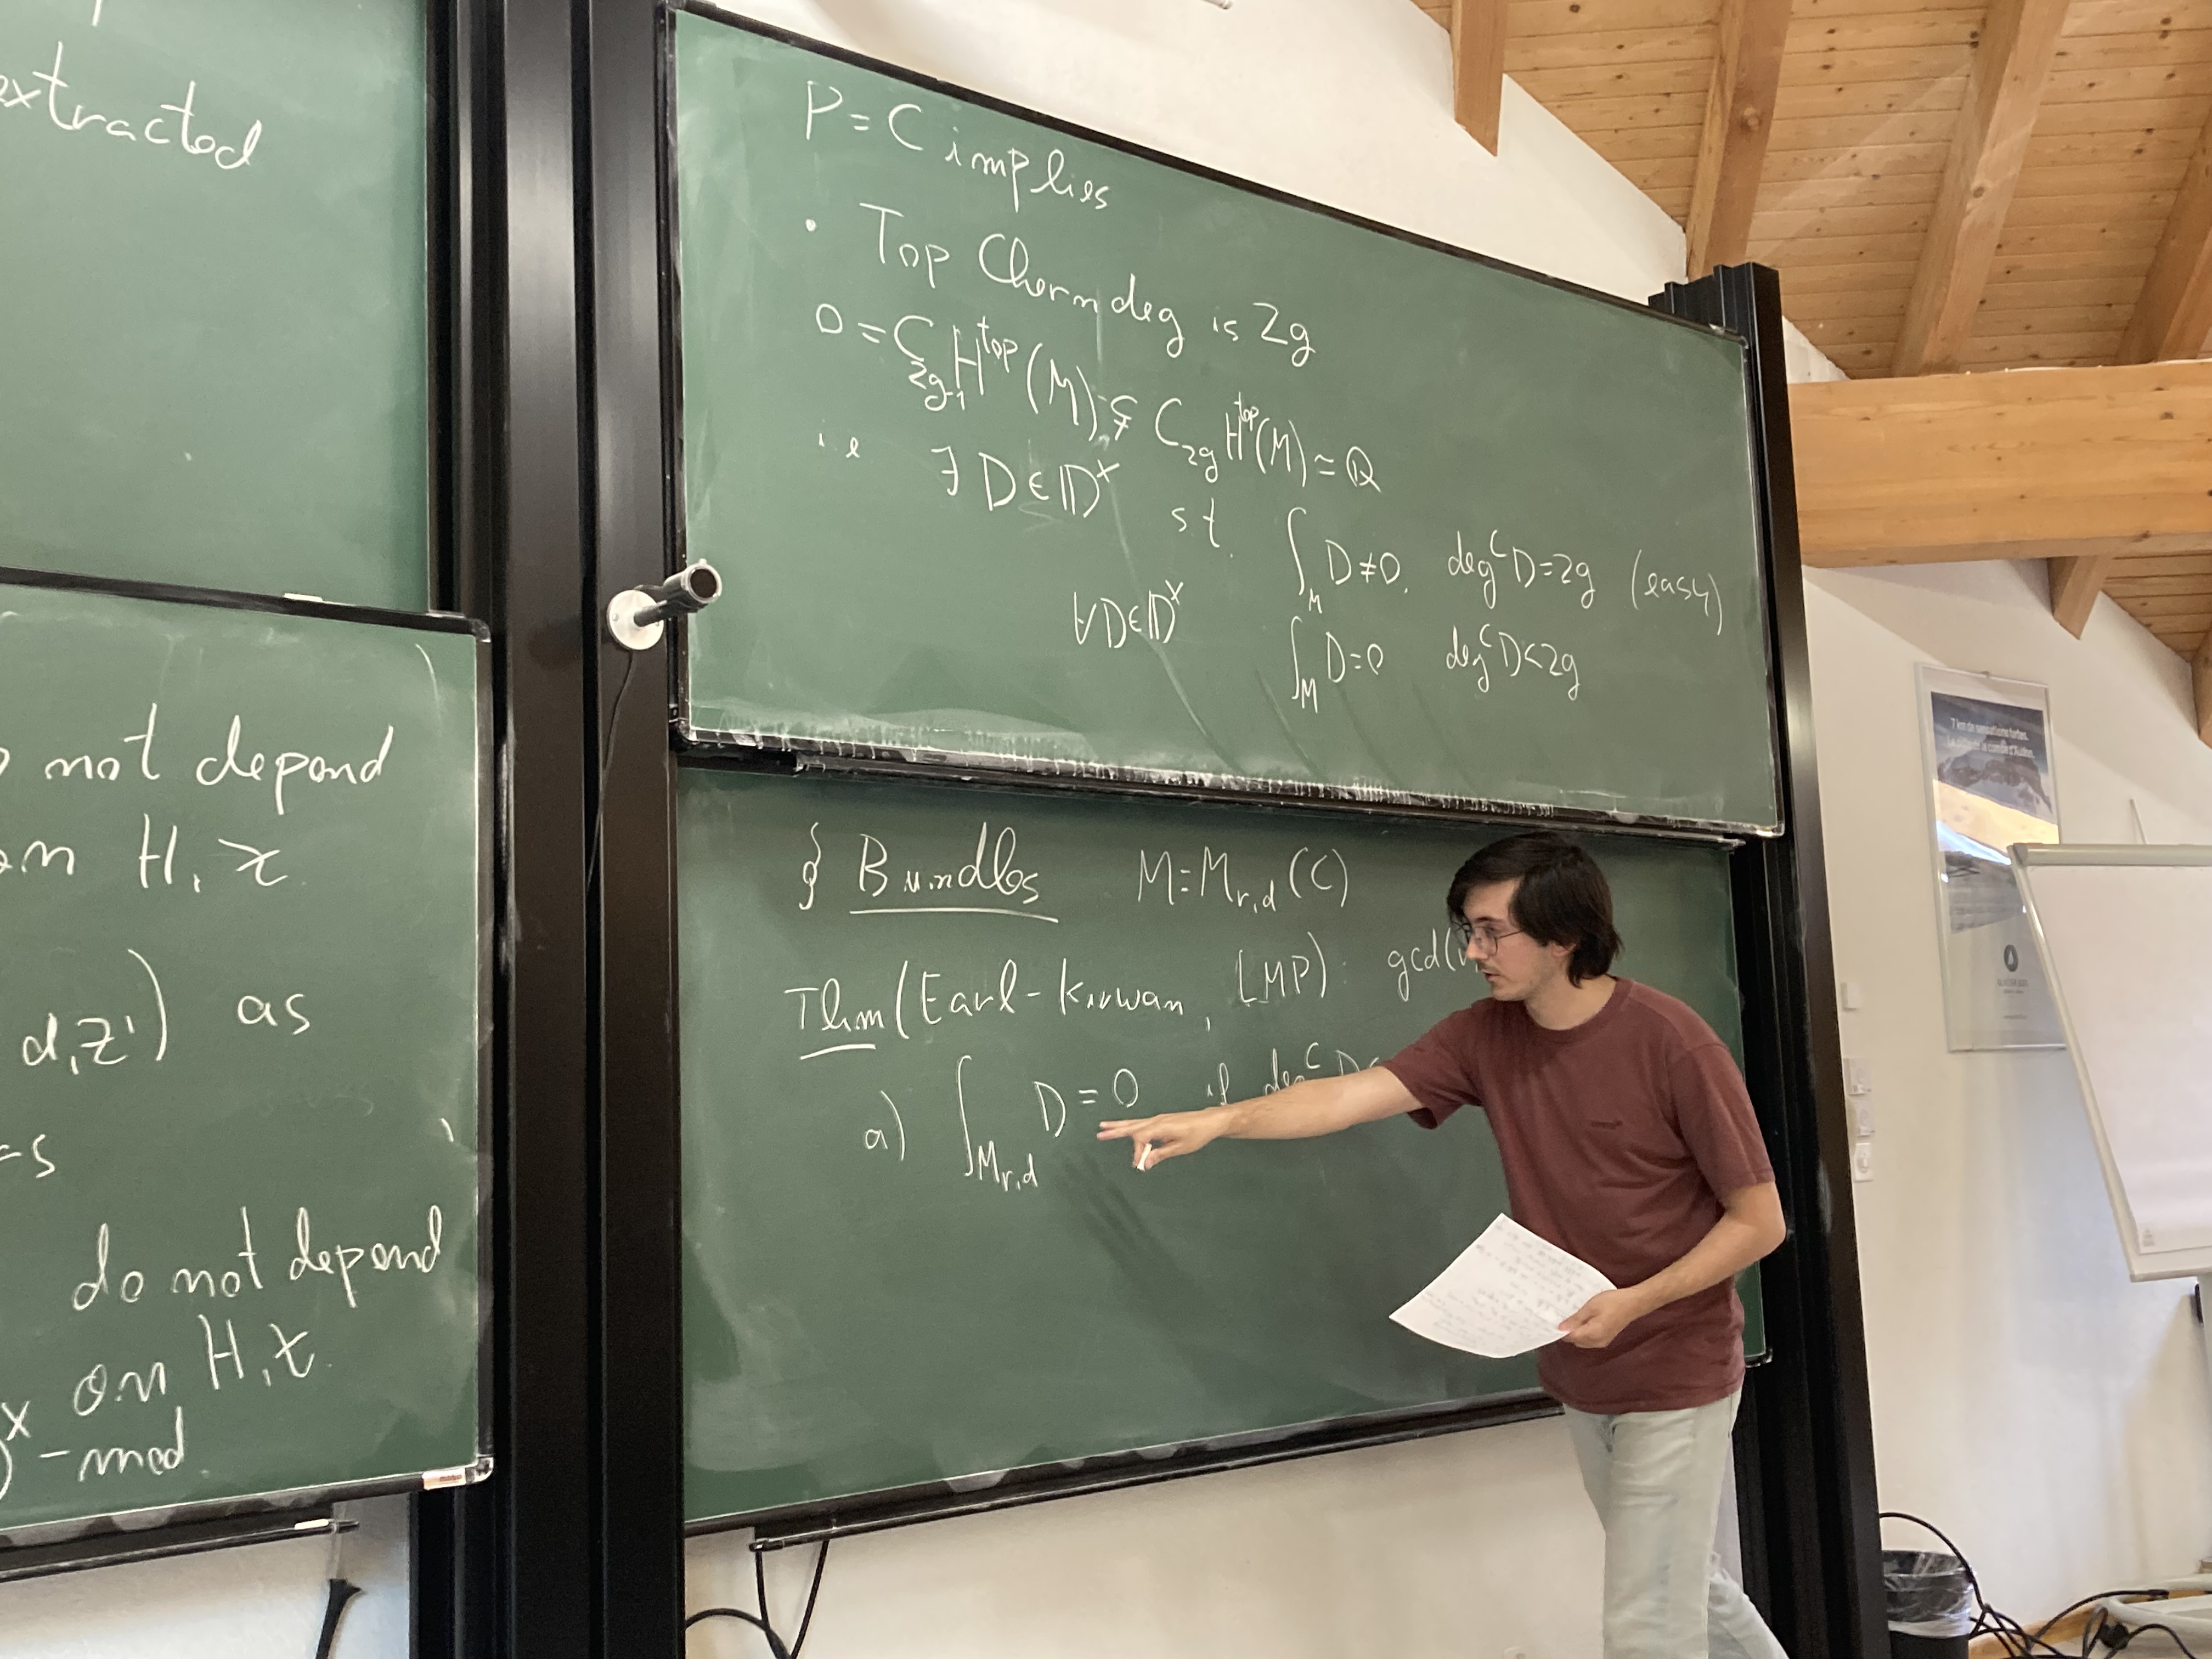 extracted
not depend
on H, χ
d, Z') as
do not depend
on H, χ.
-mod
P = C implies
• Top Chern deg is 2g
0 = C_{2g-1} H^{top}(M) ⊊ C_{2g} H^{top}(M) ≃ Q
i.e ∃ D ∈ 𝔻^χ s.t. ∫_M D ≠ 0, deg^C D = 2g (easy)
∀ D ∈ 𝔻^χ ∫_M D = 0 deg^C D < 2g
§ Bundles M = M_{r,d}(C)
Thm (Earl-Kirwan, LMP): gcd(
a) ∫_{M_{r,d}} D = 0 if deg^C D
7 km de sensations fortes.